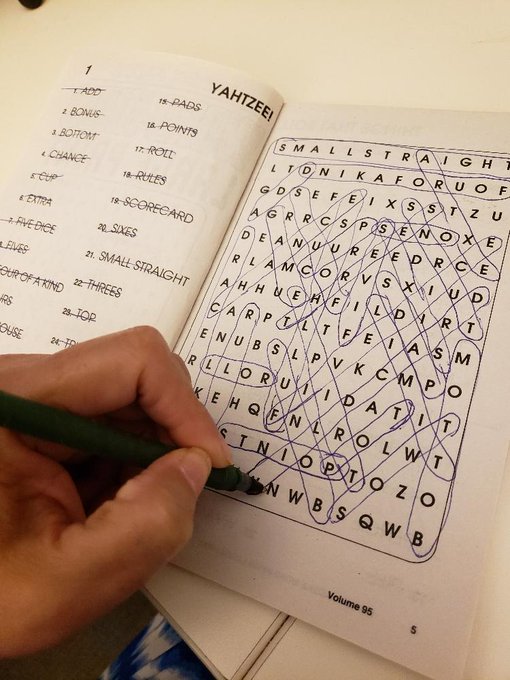 1
YAHTZEE!
1. ADD
2. BONUS
3. BOTTOM
4. CHANCE
5. CUP
6. EXTRA
7. FIVE DICE
8. FIVES
OUR OF A KIND
OUSE
15. PADS
16. POINTS
17. ROLL
18. RULES
19. SCORECARD
20. SIXES
21. SMALL STRAIGHT
22. THREES
23. TOP
24.
SMALLSTRAIGHT
LTDNIKAFORUOF
GDSEFEIXSSTZU
AGRRCSPSENOXE
DEANUUREEDRCE
RLAMCORVSXIUD
AHHUEHFILDIRT
CARPTLTFEIASM
ENUBSLPVKCMPO
RLLORUIIDATIT
KEHQFNLROLWT
STNIOPTOZO
NWBSQWB
Volume 95
5